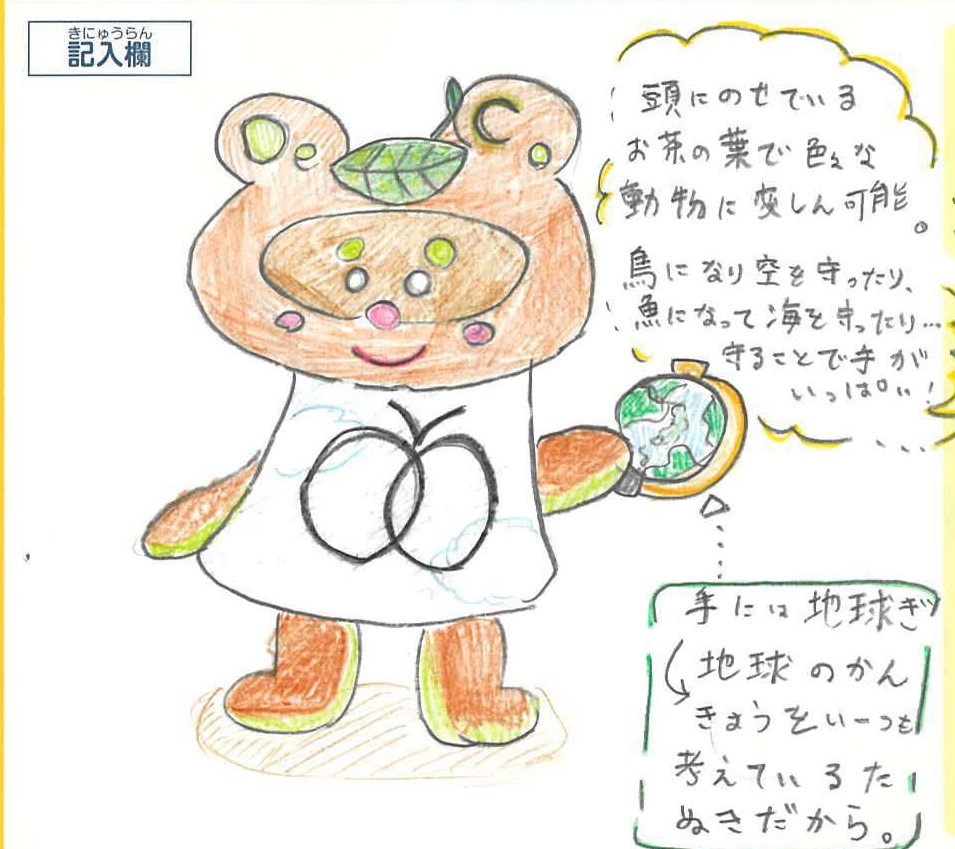 きにゅうらん
記入欄
頭にのせている
お茶の葉で色々な
動物に変しん可能。
鳥になり空を守ったり、
魚になって海を守ったり…
守ることで手が
いっぱい!
手には地球ぎ
地球のかん
きょうをいーつも
考えているた
ぬきだから。